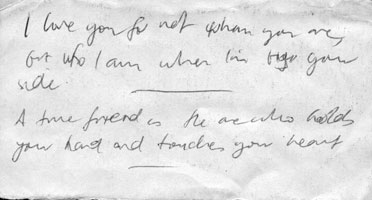 I love you for not whom you are,
but who I am when I'm by your
side
A true friend is the one who holds
your hand and touches your heart